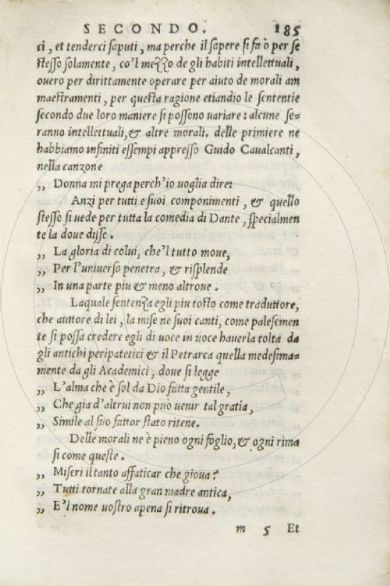 SECONDO. 185
ci, et tenderci saputi, ma perche il sapere si fa ò per se
stesso solamente, co'l mezzo de gli habiti intellettuali,
ouero per dirittamente operare per aiuto de morali am
maestramenti, per questa ragione etiandio le sententie
secondo due loro maniere si possono uariare: alcune se-
ranno intellettuali, & altre morali. delle primiere ne
habbiamo infiniti essempi appresso Guido Caualcanti,
nella canzone
„ Donna mi prega perch'io uoglia dire:
Anzi per tutti e suoi componimenti, & quello
stesso si uede per tutta la comedia di Dante, specialmen
te la doue disse.
„ La gloria di colui, che'l tutto moue,
„ Per l'uniuerso penetra, & risplende
„ In una parte piu & meno altroue.
Laquale sentenza egli piu tosto come traduttore,
che auttore di lei, la mise ne suoi canti, come palesemen
te si possa credere egli di uoce in uoce hauerla tolta da
gli antichi peripatetici & il Petrarca quella medesima-
mente da gli Academici, doue si legge
„ L'alma che è sol da Dio fatta gentile,
„ Che gia d'altrui non può uenir tal gratia,
„ Simile al suo fattor stato ritene.
Delle morali ne è pieno ogni foglio, & ogni rima
si come queste.
„ Miseri il tanto affaticar che gioua?
„ Tutti tornate alla gran madre antica,
„ E'l nome uostro apena si ritroua.
m 5 Et